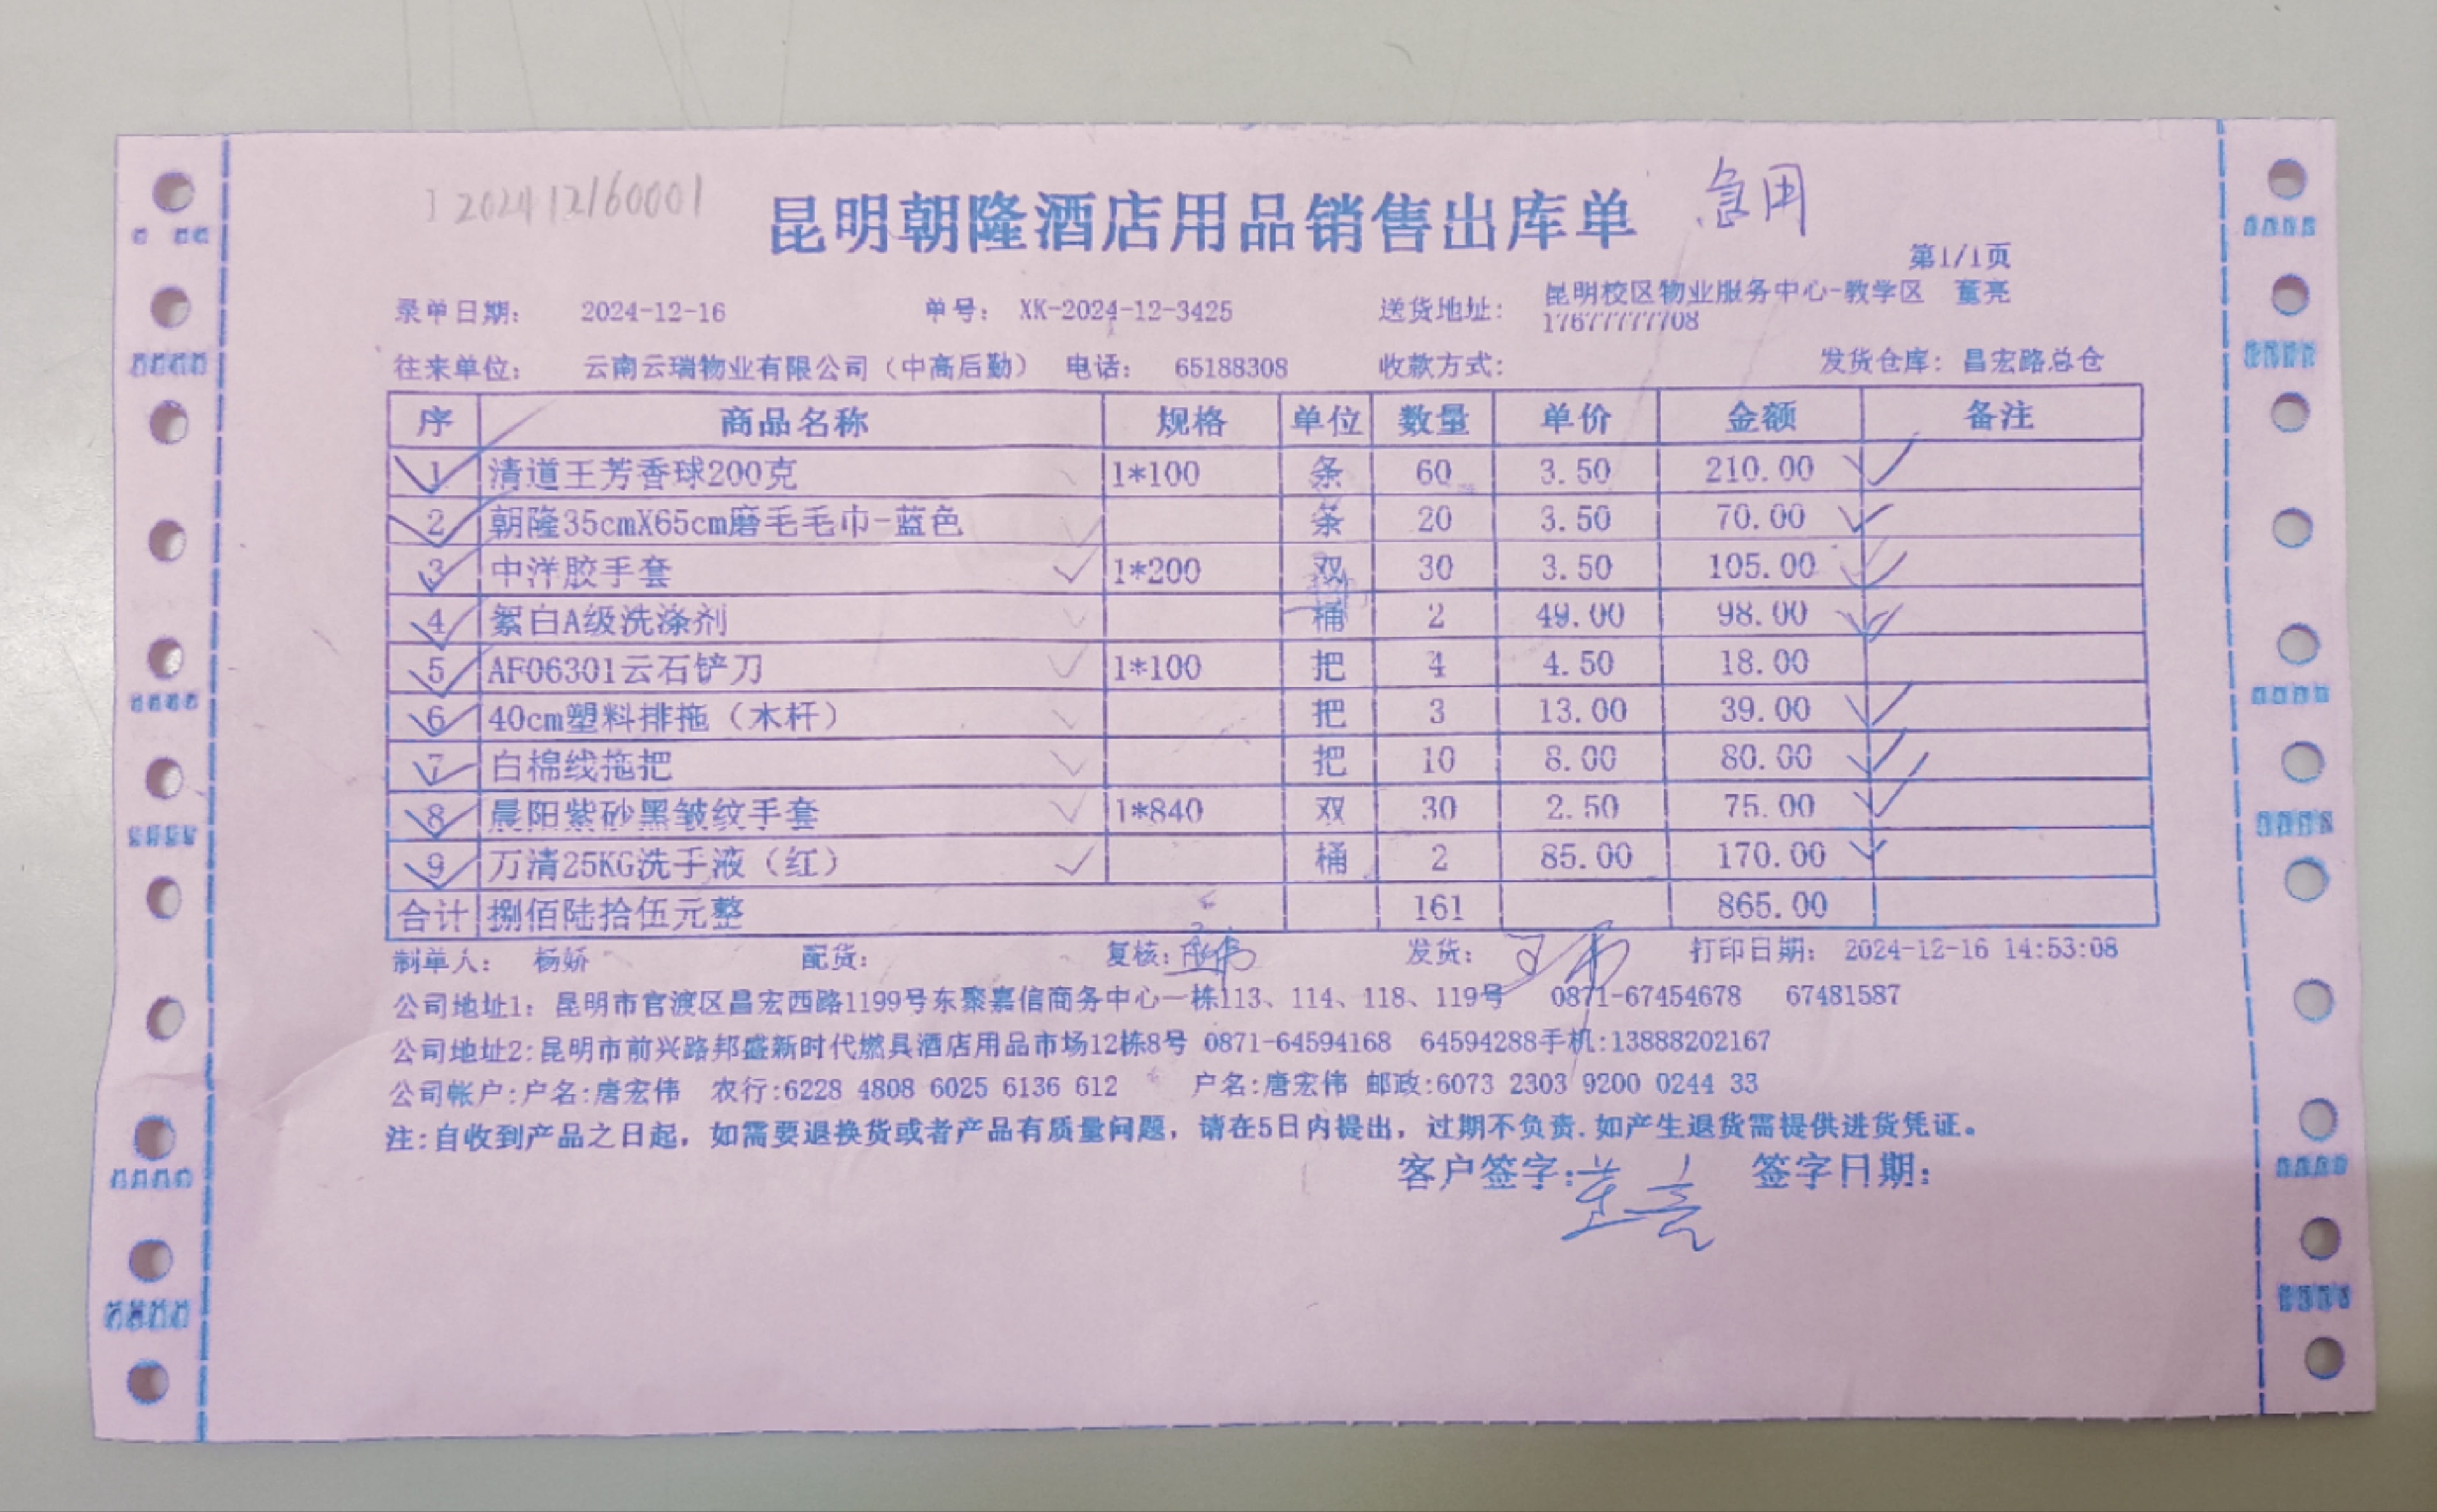 I 202412160001
昆明朝隆酒店用品销售出库单
急用
第1/1页
录单日期: 2024-12-16 单号: XK-2024-12-3425 送货地址: 昆明校区物业服务中心-教学区 董亮
17677777708
往来单位: 云南云瑞物业有限公司（中高后勤） 电话: 65188308 收款方式: 发货仓库: 昌宏路总仓
序 商品名称 规格 单位 数量 单价 金额 备注
1 清道王芳香球200克 1*100 条 60 3.50 210.00
2 朝隆35cmX65cm磨毛毛巾-蓝色 条 20 3.50 70.00
3 中洋胶手套 1*200 双 30 3.50 105.00
4 絮白A级洗涤剂 桶 2 49.00 98.00
5 AF06301云石铲刀 1*100 把 4 4.50 18.00
6 40cm塑料排拖（木杆） 把 3 13.00 39.00
7 白棉线拖把 把 10 8.00 80.00
8 晨阳紫砂黑皱纹手套 1*840 双 30 2.50 75.00
9 万清25KG洗手液（红） 桶 2 85.00 170.00
合计 捌佰陆拾伍元整 161 865.00
制单人: 杨娇 配货: 复核: 发货: 打印日期: 2024-12-16 14:53:08
公司地址1: 昆明市官渡区昌宏西路1199号东聚嘉信商务中心一栋113、114、118、119号 0871-67454678 67481587
公司地址2:昆明市前兴路邦盛新时代燃具酒店用品市场12栋8号 0871-64594168 64594288手机:13888202167
公司帐户:户名:唐宏伟 农行:6228 4808 6025 6136 612 户名:唐宏伟 邮政:6073 2303 9200 0244 33
注:自收到产品之日起，如需要退换货或者产品有质量问题，请在5日内提出，过期不负责.如产生退货需提供进货凭证。
客户签字:董亮 签字日期: